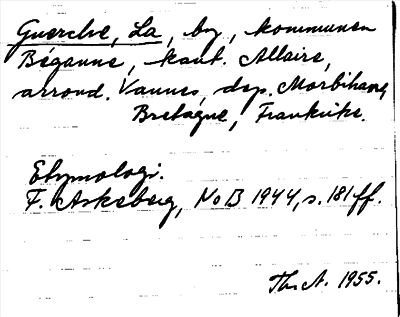 Guerche, La, by, kommunen
Béganne, kant. Allaire,
arrond. Vannes, dep. Morbihan,
Bretagne, Frankrike.
Etymologi.
F. Askeberg, NoB 1944, s. 181 ff.
Th. A. 1955.